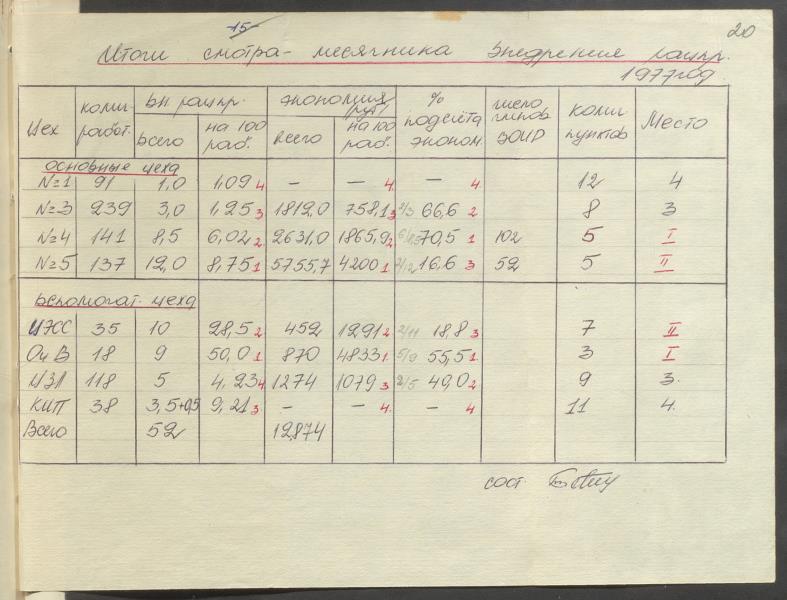 15
20
Итоги смотра-месячника внедрения рацпр.
1977 год
Цех колич. работ. вн. рацпр. экономия (руб) % подсчёта эконом. число ЭОИР колич пунктов Место
всего на 100 раб. всего на 100 раб.
основные цеха
№1 91 1,0 1,09 4 — — 4 — 4 12 4
№3 239 3,0 1,25 3 1812,0 758,1 3 2/3 66,6 2 8 3
№4 141 8,5 6,02 2 2631,0 1865,9 2 70,5 1 102 5 I
№5 137 12,0 8,75 1 5755,7 4200 1 2/12 16,6 3 52 5 II
Вспомогат. цеха
35 10 28,5 2 452 1291 2 2/11 18,8 3 7 II
ОиВ 18 9 50,0 1 870 4833 1 5/9 55,5 1 3 I
118 5 4,23 4 1274 1079 3 2/5 40,0 2 9 3
КИП 38 3,5+0,5 9,21 3 — — 4 — 4 11 4
Всего 52 12874
сост.